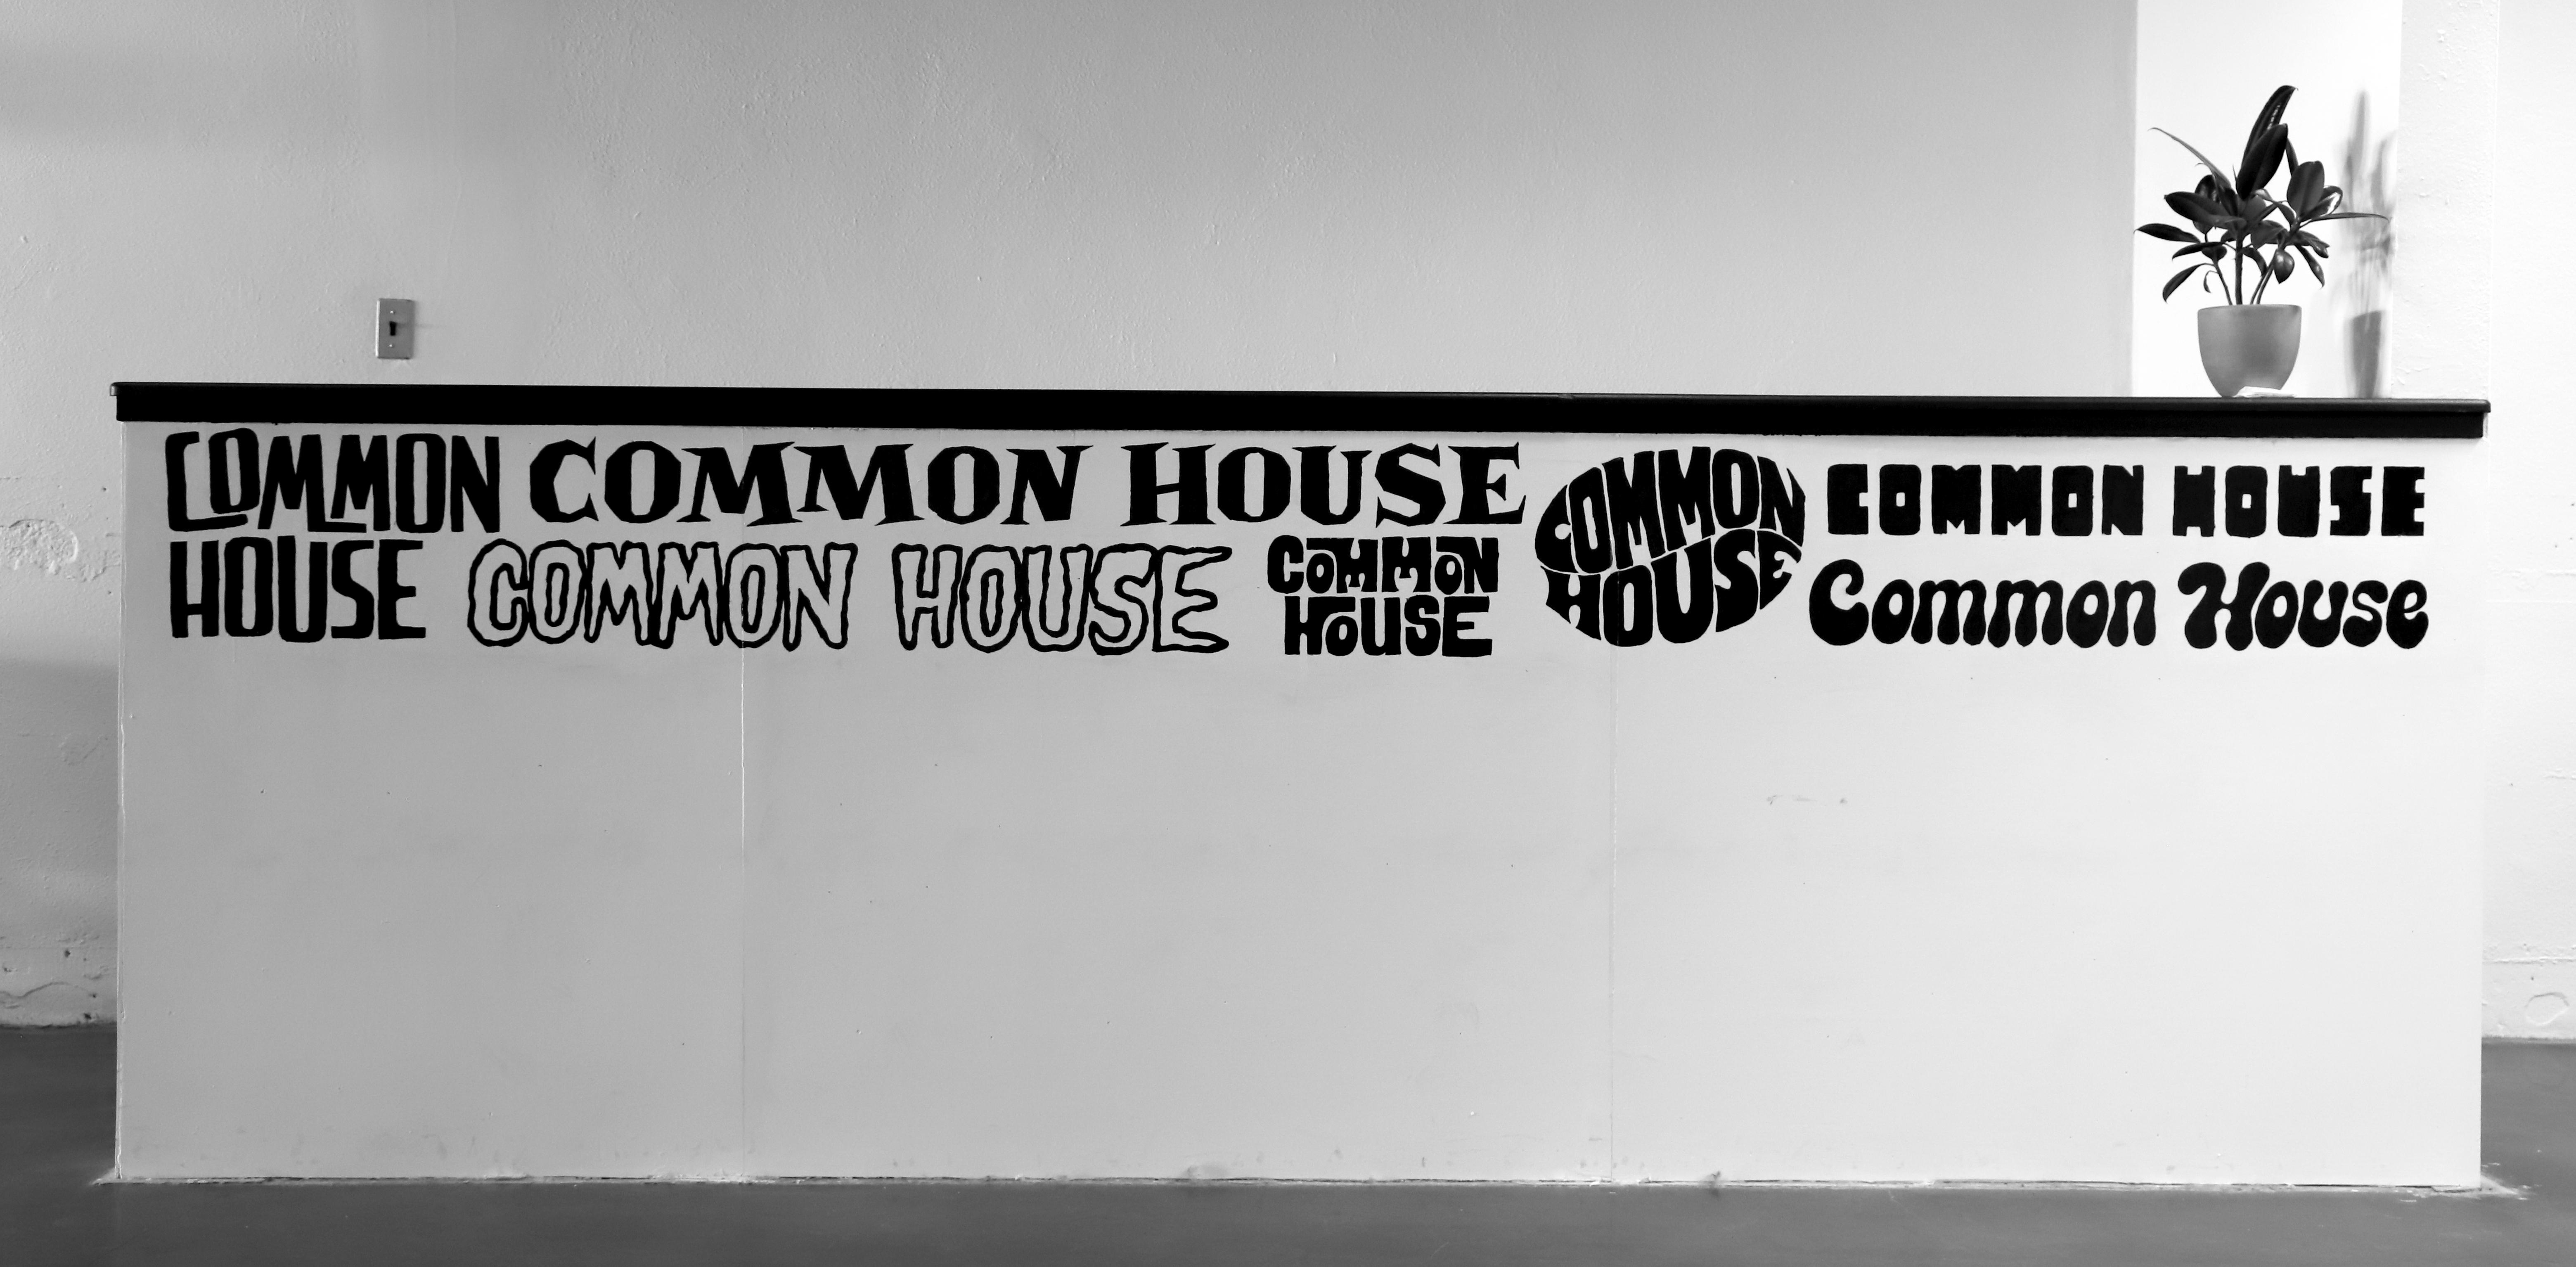 COMMON
HOUSE
COMMON HOUSE
COMMON HOUSE
COMMON
HOUSE
COMMON
HOUSE
COMMON HOUSE
Common House